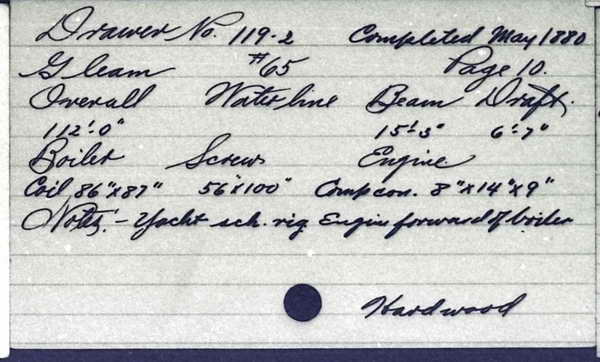 Drawer No. 119-2 Completed May 1880
Gleam #65 Page 10.
Overall Waterline Beam Draft.
112'-0" 15'-3" 6'-7"
Boiler Screw Engine
Coil 86"x87" 56"x100" Comp con. 8"x14"x9"
Notes: - Yacht sch. rig Engine forward of boiler
Hardwood